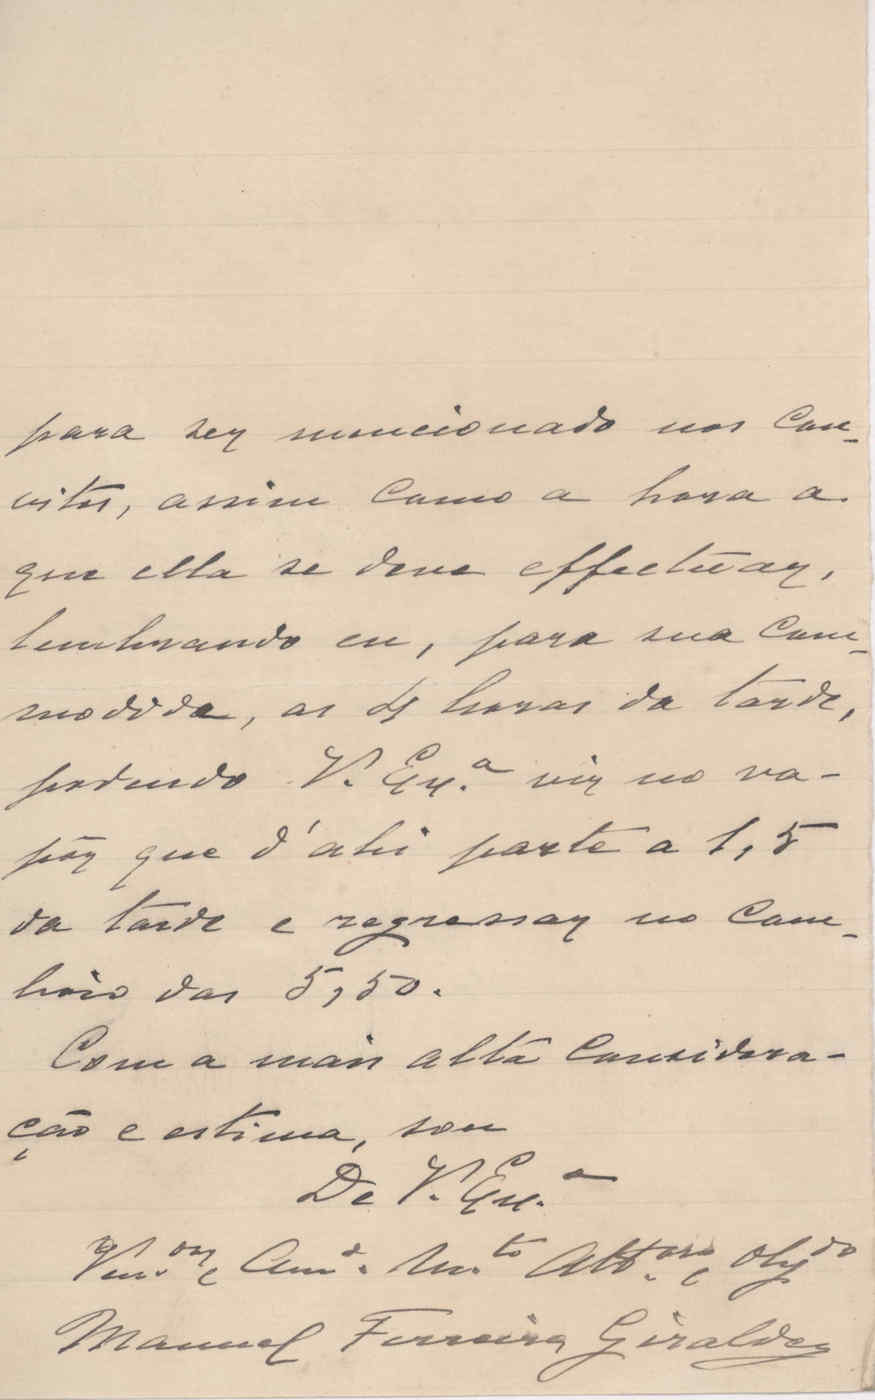 para ser mencionado nos con-
vites, assim como a hora a
que ella se deve effectuar,
lembrando eu, para sua com-
modida, as 4 horas da tarde,
podendo V. Exª vir no va-
pôr que d'ahi parte a 1,5
da tarde e regressar no com-
boio das 5,50.
Com a mais alta considera-
ção e estima, sou
De V. Exª
Ven.or e Am.o M.to Att.o e Obgdo
Manuel Ferreira Giraldes